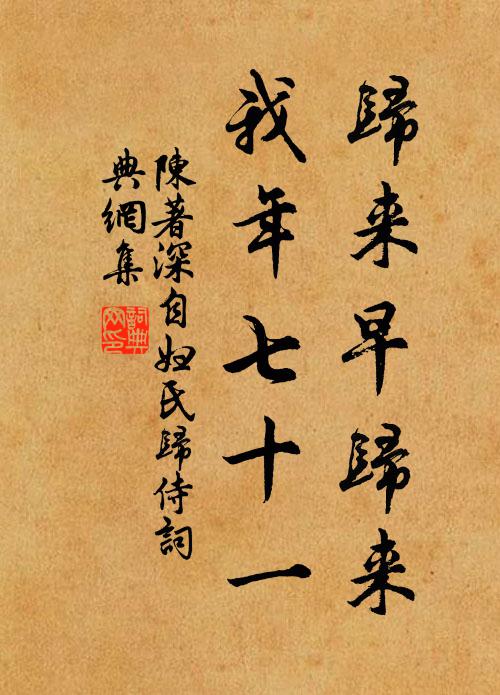 歸来早歸来
我年七十一
陳著深自妞氏歸侍詞
典網集
詞典網印